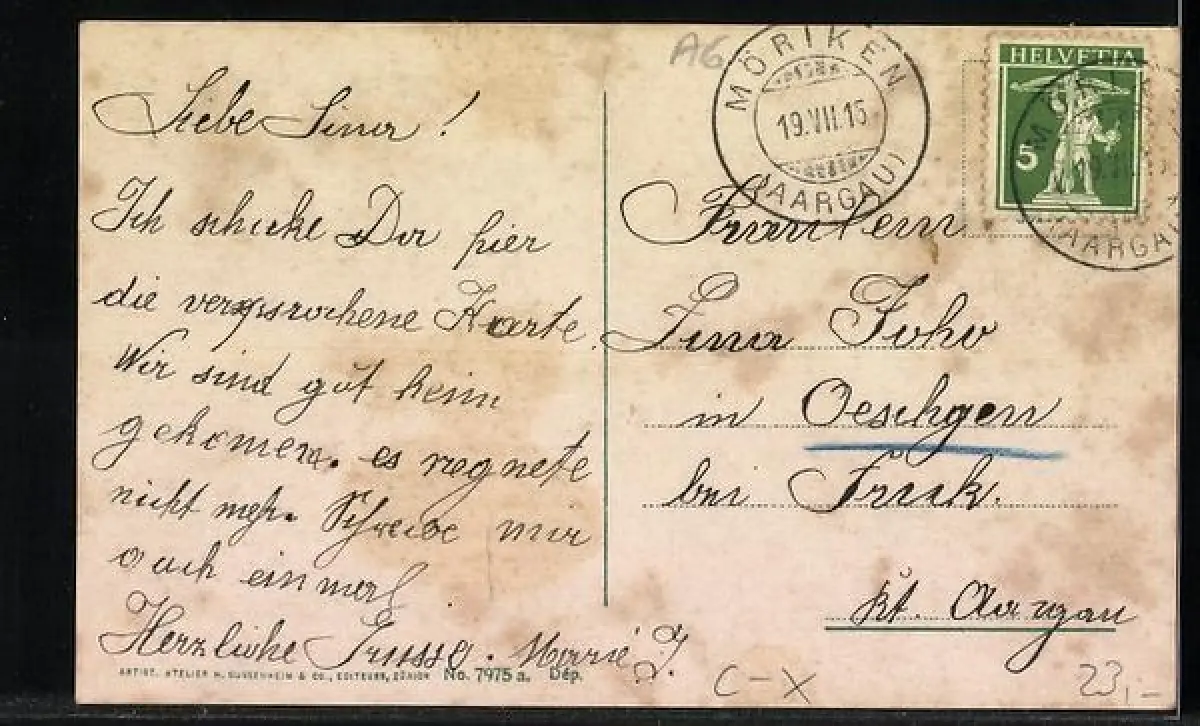 Liebe Lina!
Ich schicke Dir hier
die versprochene Karte.
Wir sind gut heim
gekomen. es regnete
nicht mehr. Schreibe mir
auch einmal.
Herzliche Grüsse. Marie J.
ARTIST. ATELIER H. GUGGENHEIM & CO., EDITEURS, ZÜRICH No. 7975 a. Dép.
A6
MÖRIKEN
19.VII.15
(AARGAU)
HELVETIA
5
AARGAU
Fräulein
Lina Joho
in Oeschgen
bei Frick.
Kt. Aargau
C-X
23,-